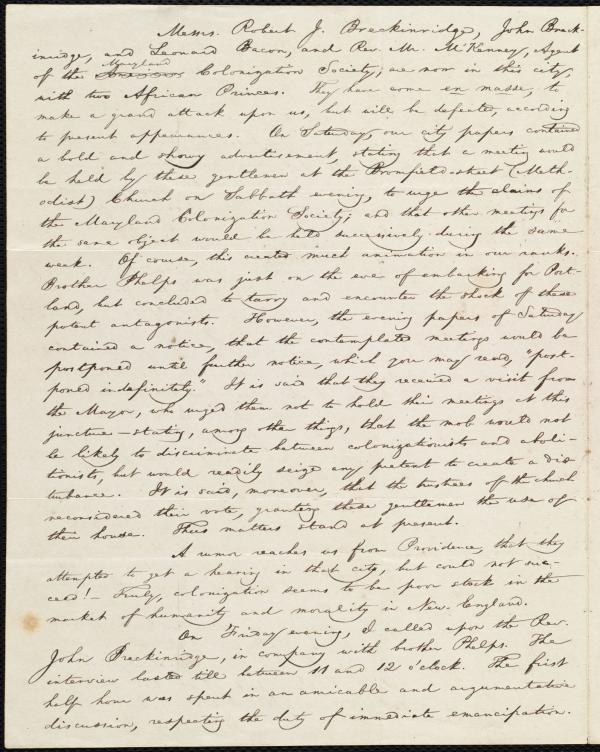 Messrs. Robert J. Breckinridge, John Breck-
inridge, and Leonard Bacon, and Rev. Mr. McKenney, Agent
of the Maryland Colonization Society, are now in this city,
with two African Princes. They have come en masse, to
make a grand attack upon us, but will be defeated, according
to present appearances. On Saturday, our city papers contained
a bold and showy advertisement, stating that a meeting would
be held by these gentlemen at the Bromfield-street (Meth-
odist) Church on Sabbath evening, to urge the claims of
the Maryland Colonization Society; and that other meetings for
the same object would be held successively during the same
week. Of course, this created much animation in our ranks.
Brother Phelps was just on the eve of embarking for Port-
land, but concluded to tarry and encounter the shock of these
potent antagonists. However, the evening papers of Saturday
contained a notice, that the contemplated meetings would be
postponed until further notice, which you may read, "post-
poned indefinitely." It is said that they received a visit from
the Mayor, who urged them not to hold their meetings at this
juncture—stating, among other things, that the mob would not
be likely to discriminate between colonizationists and aboli-
tionists, but would readily seize any pretext to create a dis-
turbance. It is said, moreover, that the trustees of the church
reconsidered their vote, granting these gentlemen the use of
their house. Thus matters stand at present.
A rumor reaches us from Providence, that they
attempted to get a hearing in that city, but could not suc-
ceed!— Truly, colonization seems to be poor stock in the
market of humanity and morality in New England.
On Friday evening, I called upon the Rev.
John Breckinridge, in company with brother Phelps. The
interview lasted till between 11 and 12 o'clock. The first
half hour was spent in an amicable and argumentative
discussion, respecting the duty of immediate emancipation.